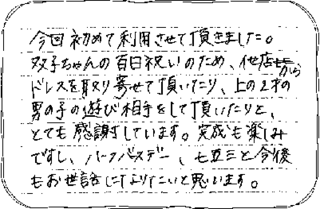 今回初めて利用させて頂きました。
双子ちゃんの百日祝いのため、他店から
ドレスを取り寄せて頂いたり、上の2才の
男の子の遊び相手をして頂いたりと、
とても感謝しています。完成も楽しみ
ですし、ハーフバースデー、七五三と今後
もお世話になりたいと思います。